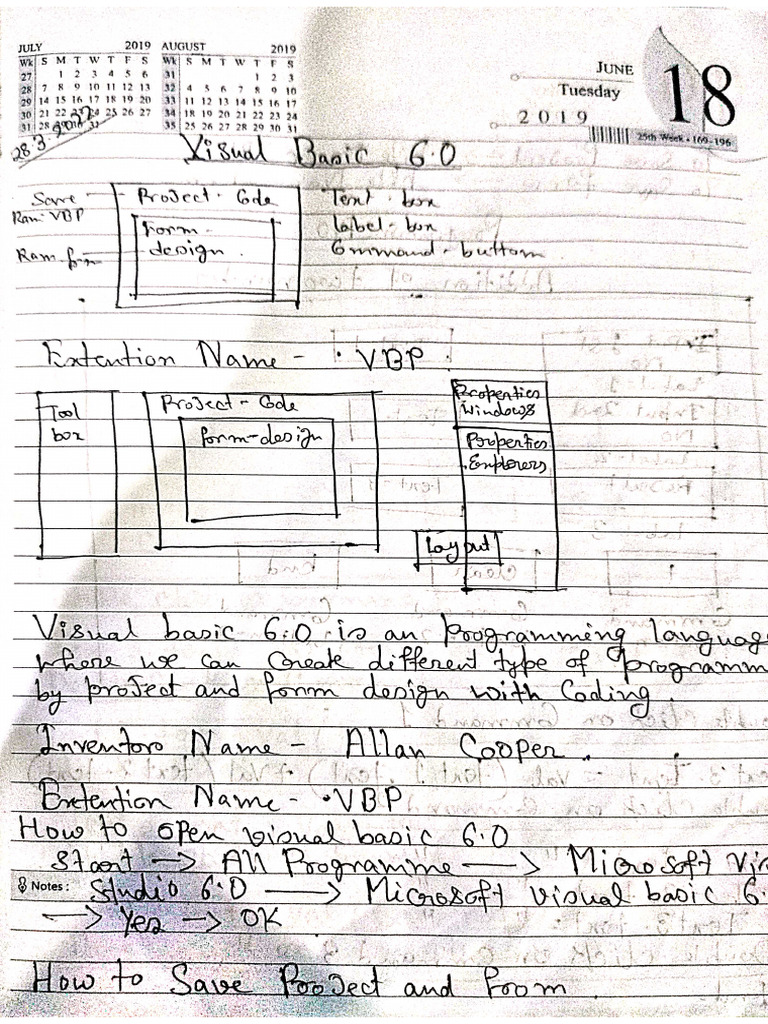 JULY 2019
Wk S M T W T F S
27 1 2 3 4 5 6
28 7 8 9 10 11 12 13
29 14 15 16 17 18 19 20
30 21 22 23 24 25 26 27
31 28 31
AUGUST 2019
Wk S M T W T F S
31 1 2 3
32 4 5 6 7 8 9 10
33 11 12 13 14 15 16 17
34 18 19 20 21 22 23 24
35 25 26 27 28 29 30 31
JUNE
18
Tuesday
2019
25th Week • 169-196
28.3.2022
Visual Basic 6.0
Save
Ram.VBP
Ram.frm
Project - Code
Form-
design
Text - box
Label - box
Command - button
Extention Name - .VBP
Tool
box
Project - Code
form-design
Properties
Windows
Properties
Explorers
Layout
Visual basic 6.0 is an programming languag
where we can create different type of programm
by project and form design with Coding.
Inventors Name - Allan Cooper.
Extention Name - .VBP
How to open visual basic 6.0
Start → All Programme → Microsoft Vis
Notes: Studio 6.0 → Microsoft visual basic 6.
→ Yes → OK
How to Save Project and From